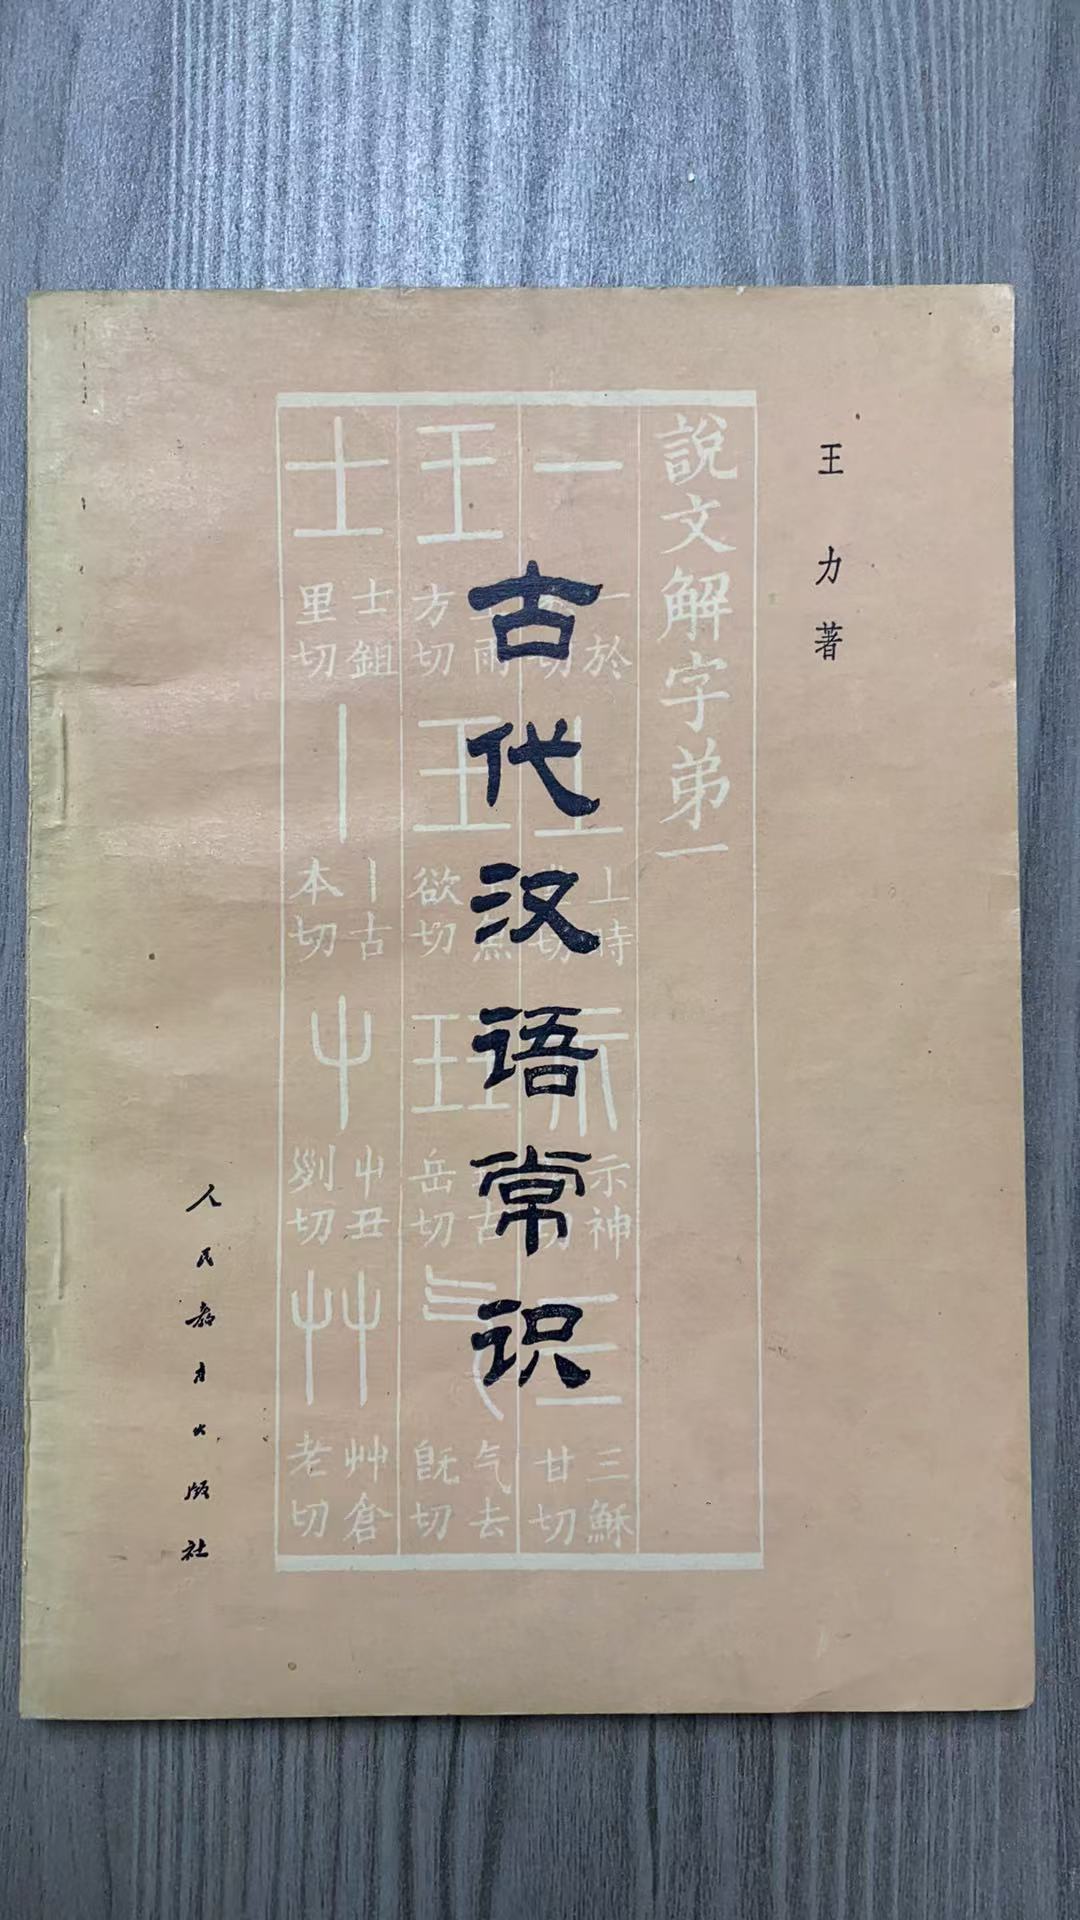 王力著
古代汉语常识
人民教育出版社
說文解字弟一
一 一於
上 上時
示 示神
三 三穌甘切
王 方切
王 欲切
玨 岳切
气 气去旣切
士 士鉏里切
丨 丨古本切
屮 屮丑列切
艸 艸倉老切